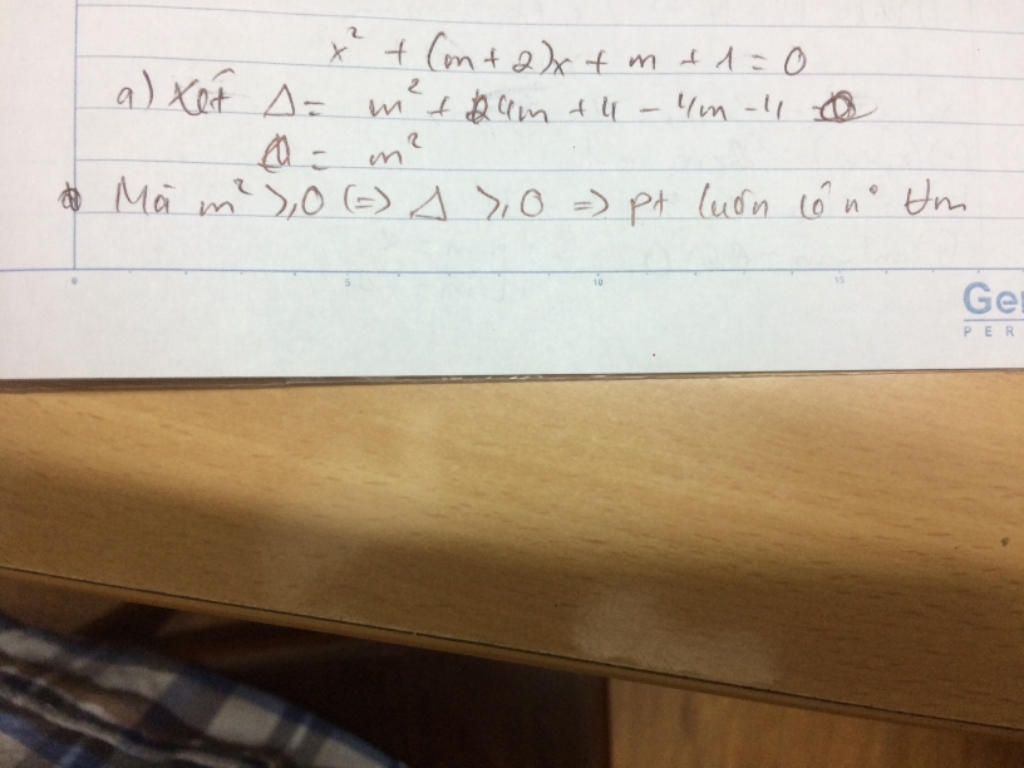 x² + (m+2)x + m + 1 = 0
a) Xét Δ = m² + 4m + 4 - 4m - 4
= m²
Mà m² ≥ 0 (=> Δ ≥ 0 => pt luôn có n° ∀m
0 5 10 15
Ger
PER